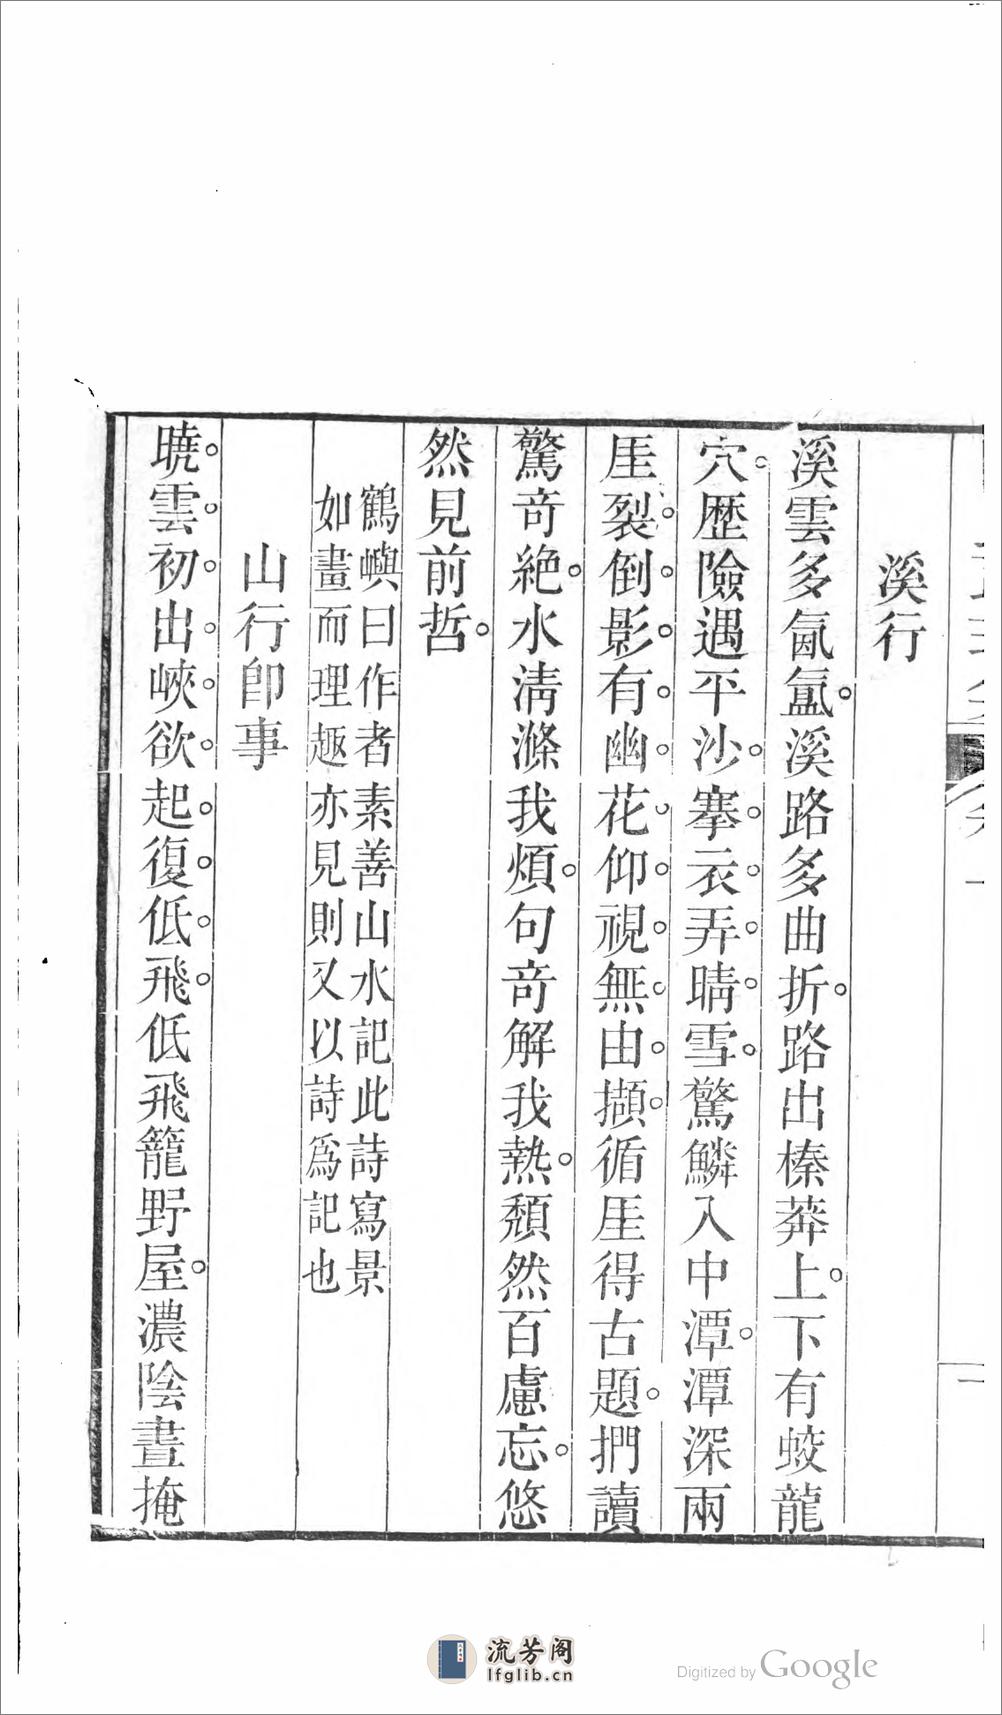 溪行
溪雲多氤氳。溪路多曲折。路出榛莽上。下有蛟龍
穴。歷險遇平沙。搴衣弄晴雪。驚鱗入中潭。潭深兩
厓裂。倒影有幽花。仰視無由擷。循厓得古題。捫讀
驚奇絶。水淸滌我煩。句奇解我熱。頽然百慮忘。悠
然見前哲。
鶴嶼曰作者素善山水記此詩寫景
如畫而理趣亦見則又以詩爲記也
山行卽事
曉雲初出峽。欲起復低飛。低飛籠野屋。濃陰晝掩
流芳阁
lfglib.cn
Digitized by Google